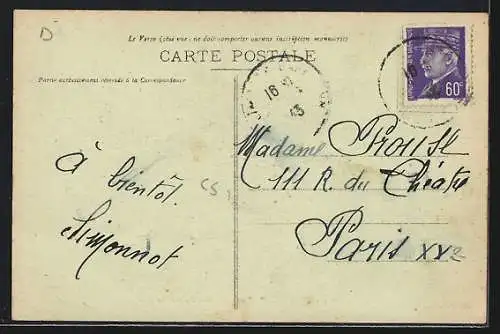 D
Le Verso (côté vue) ne doit comporter aucune inscription manuscrite
CARTE POSTALE
Partie exclusivement réservée à la Correspondance
16
43
16
60c
à bientôt.
Simonnot
cs
Madame Prouse
111 R. du Théatre
Paris XV